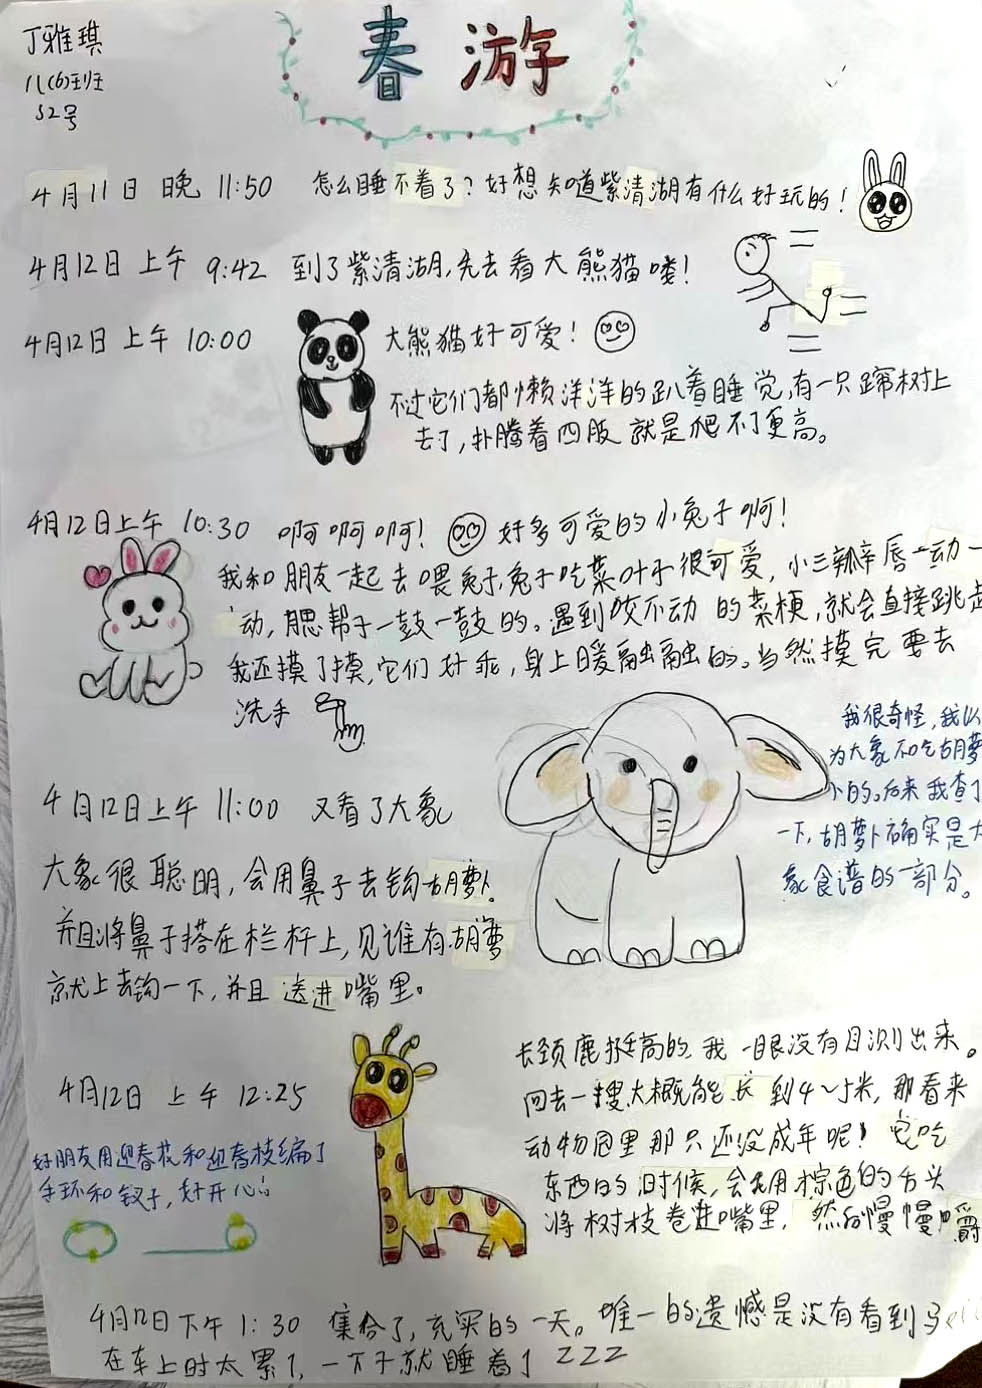 丁雅琪
八(6)班
52号
春游
4月11日 晚 11:50 怎么睡不着了?好想知道紫清湖有什么好玩的!
4月12日 上午 9:42 到了紫清湖,先去看大熊猫喽!
4月12日 上午 10:00 大熊猫好可爱!
不过它们都懒洋洋的趴着睡觉,有一只蹿树上
去了,扑腾着四肢就是爬不了更高。
4月12日上午 10:30 啊啊啊! 好多可爱的小兔子啊!
我和朋友一起去喂兔子,兔子吃菜叶子很可爱,小三瓣唇一动一
动,腮帮子一鼓一鼓的。遇到咬不动的菜梗,就会直接跳走
我还摸了摸,它们好乖,身上暖融融的。当然摸完要去
洗手
4月12日上午 11:00 又看了大象
大象很聪明,会用鼻子去钩胡萝卜.
并且将鼻子搭在栏杆上,见谁有胡萝
就上去钩一下,并且送进嘴里。
我很奇怪,我以
为大象不吃胡萝
卜的。后来我查了
一下,胡萝卜确实是大
象食谱的一部分。
4月12日 上午 12:25
好朋友用迎春花和迎春枝编了
手环和钗子,好开心!
长颈鹿挺高的,我一眼没有目测出来。
回去一搜,大概能长到4~5米,那看来
动物园里那只还没成年呢!它吃
东西的时候,会先用棕色的舌头
将树枝卷进嘴里,然后慢慢嚼
4月12日下午 1:30 集合了,充实的一天。唯一的遗憾是没有看到
在车上时太累了,一下子就睡着了 ZZZ